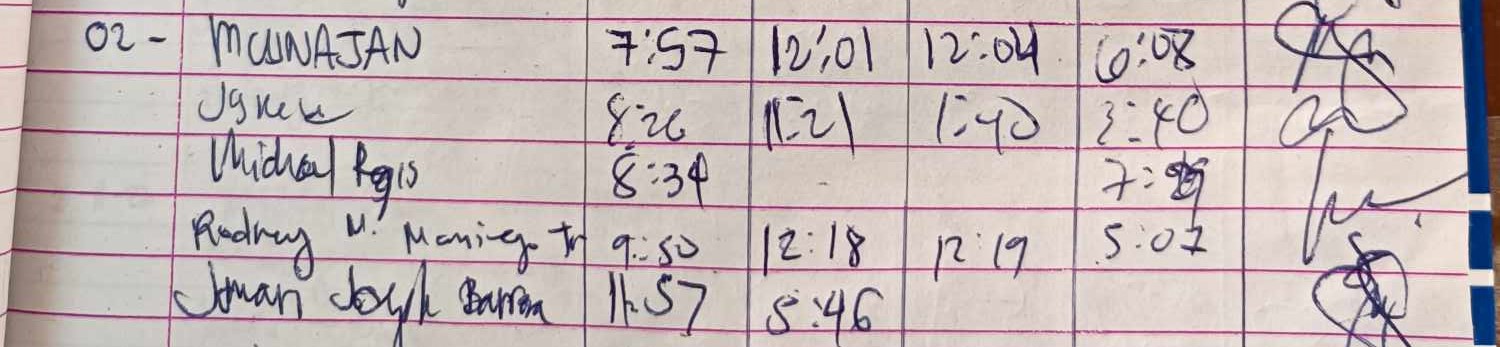 02- MUNAJAN 7:57 12:01 12:04 6:08
8:26 11:21 1:40 3:40
Michael Regis 8:34 7:
Rodney M. Maniego Jr 9:50 12:18 12:19 5:07
Joseph 11:57 5:46